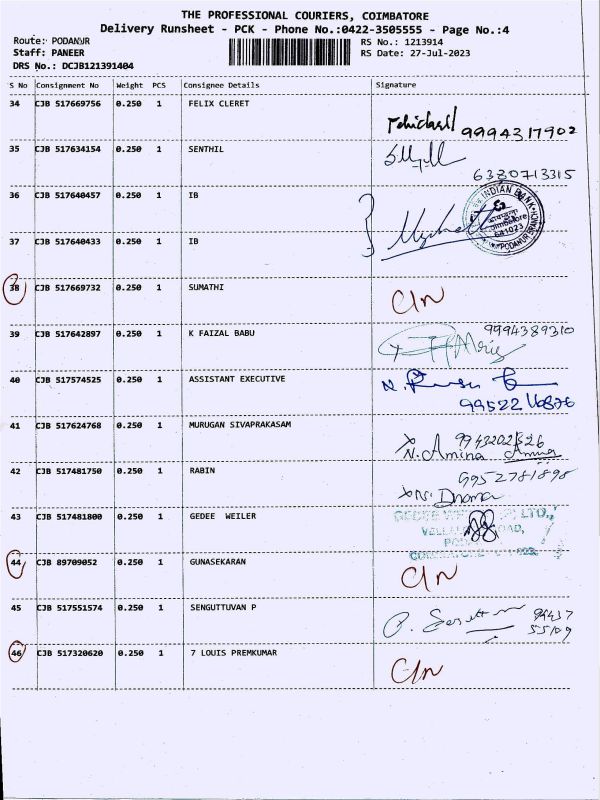 THE PROFESSIONAL COURIERS, COIMBATORE
Delivery Runsheet - PCK - Phone No.:0422-3505555 - Page No.:4
Route: PODANUR
RS No.: 1213914
Staff: PANEER
RS Date: 27-Jul-2023
DRS No.: DCJB121391404
S No Consignment No Weight PCS Consignee Details Signature
34 CJB 517669756 0.250 1 FELIX CLERET
9994317902
35 CJB 517634154 0.250 1 SENTHIL
6380713315
36 CJB 517640457 0.250 1 IB
INDIAN BANK
Coimbatore
641023
PODANUR BRANCH
37 CJB 517640433 0.250 1 IB
38 CJB 517669732 0.250 1 SUMATHI
C/N
39 CJB 517642897 0.250 1 K FAIZAL BABU
9994389310
40 CJB 517574525 0.250 1 ASSISTANT EXECUTIVE
41 CJB 517624768 0.250 1 MURUGAN SIVAPRAKASAM
N. Amina
42 CJB 517481750 0.250 1 RABIN
9952781898
43 CJB 517481800 0.250 1 GEDEE WEILER
44 CJB 89709052 0.250 1 GUNASEKARAN
C/N
45 CJB 517551574 0.250 1 SENGUTTUVAN P
94437
55109
46 CJB 517320620 0.250 1 7 LOUIS PREMKUMAR
C/N